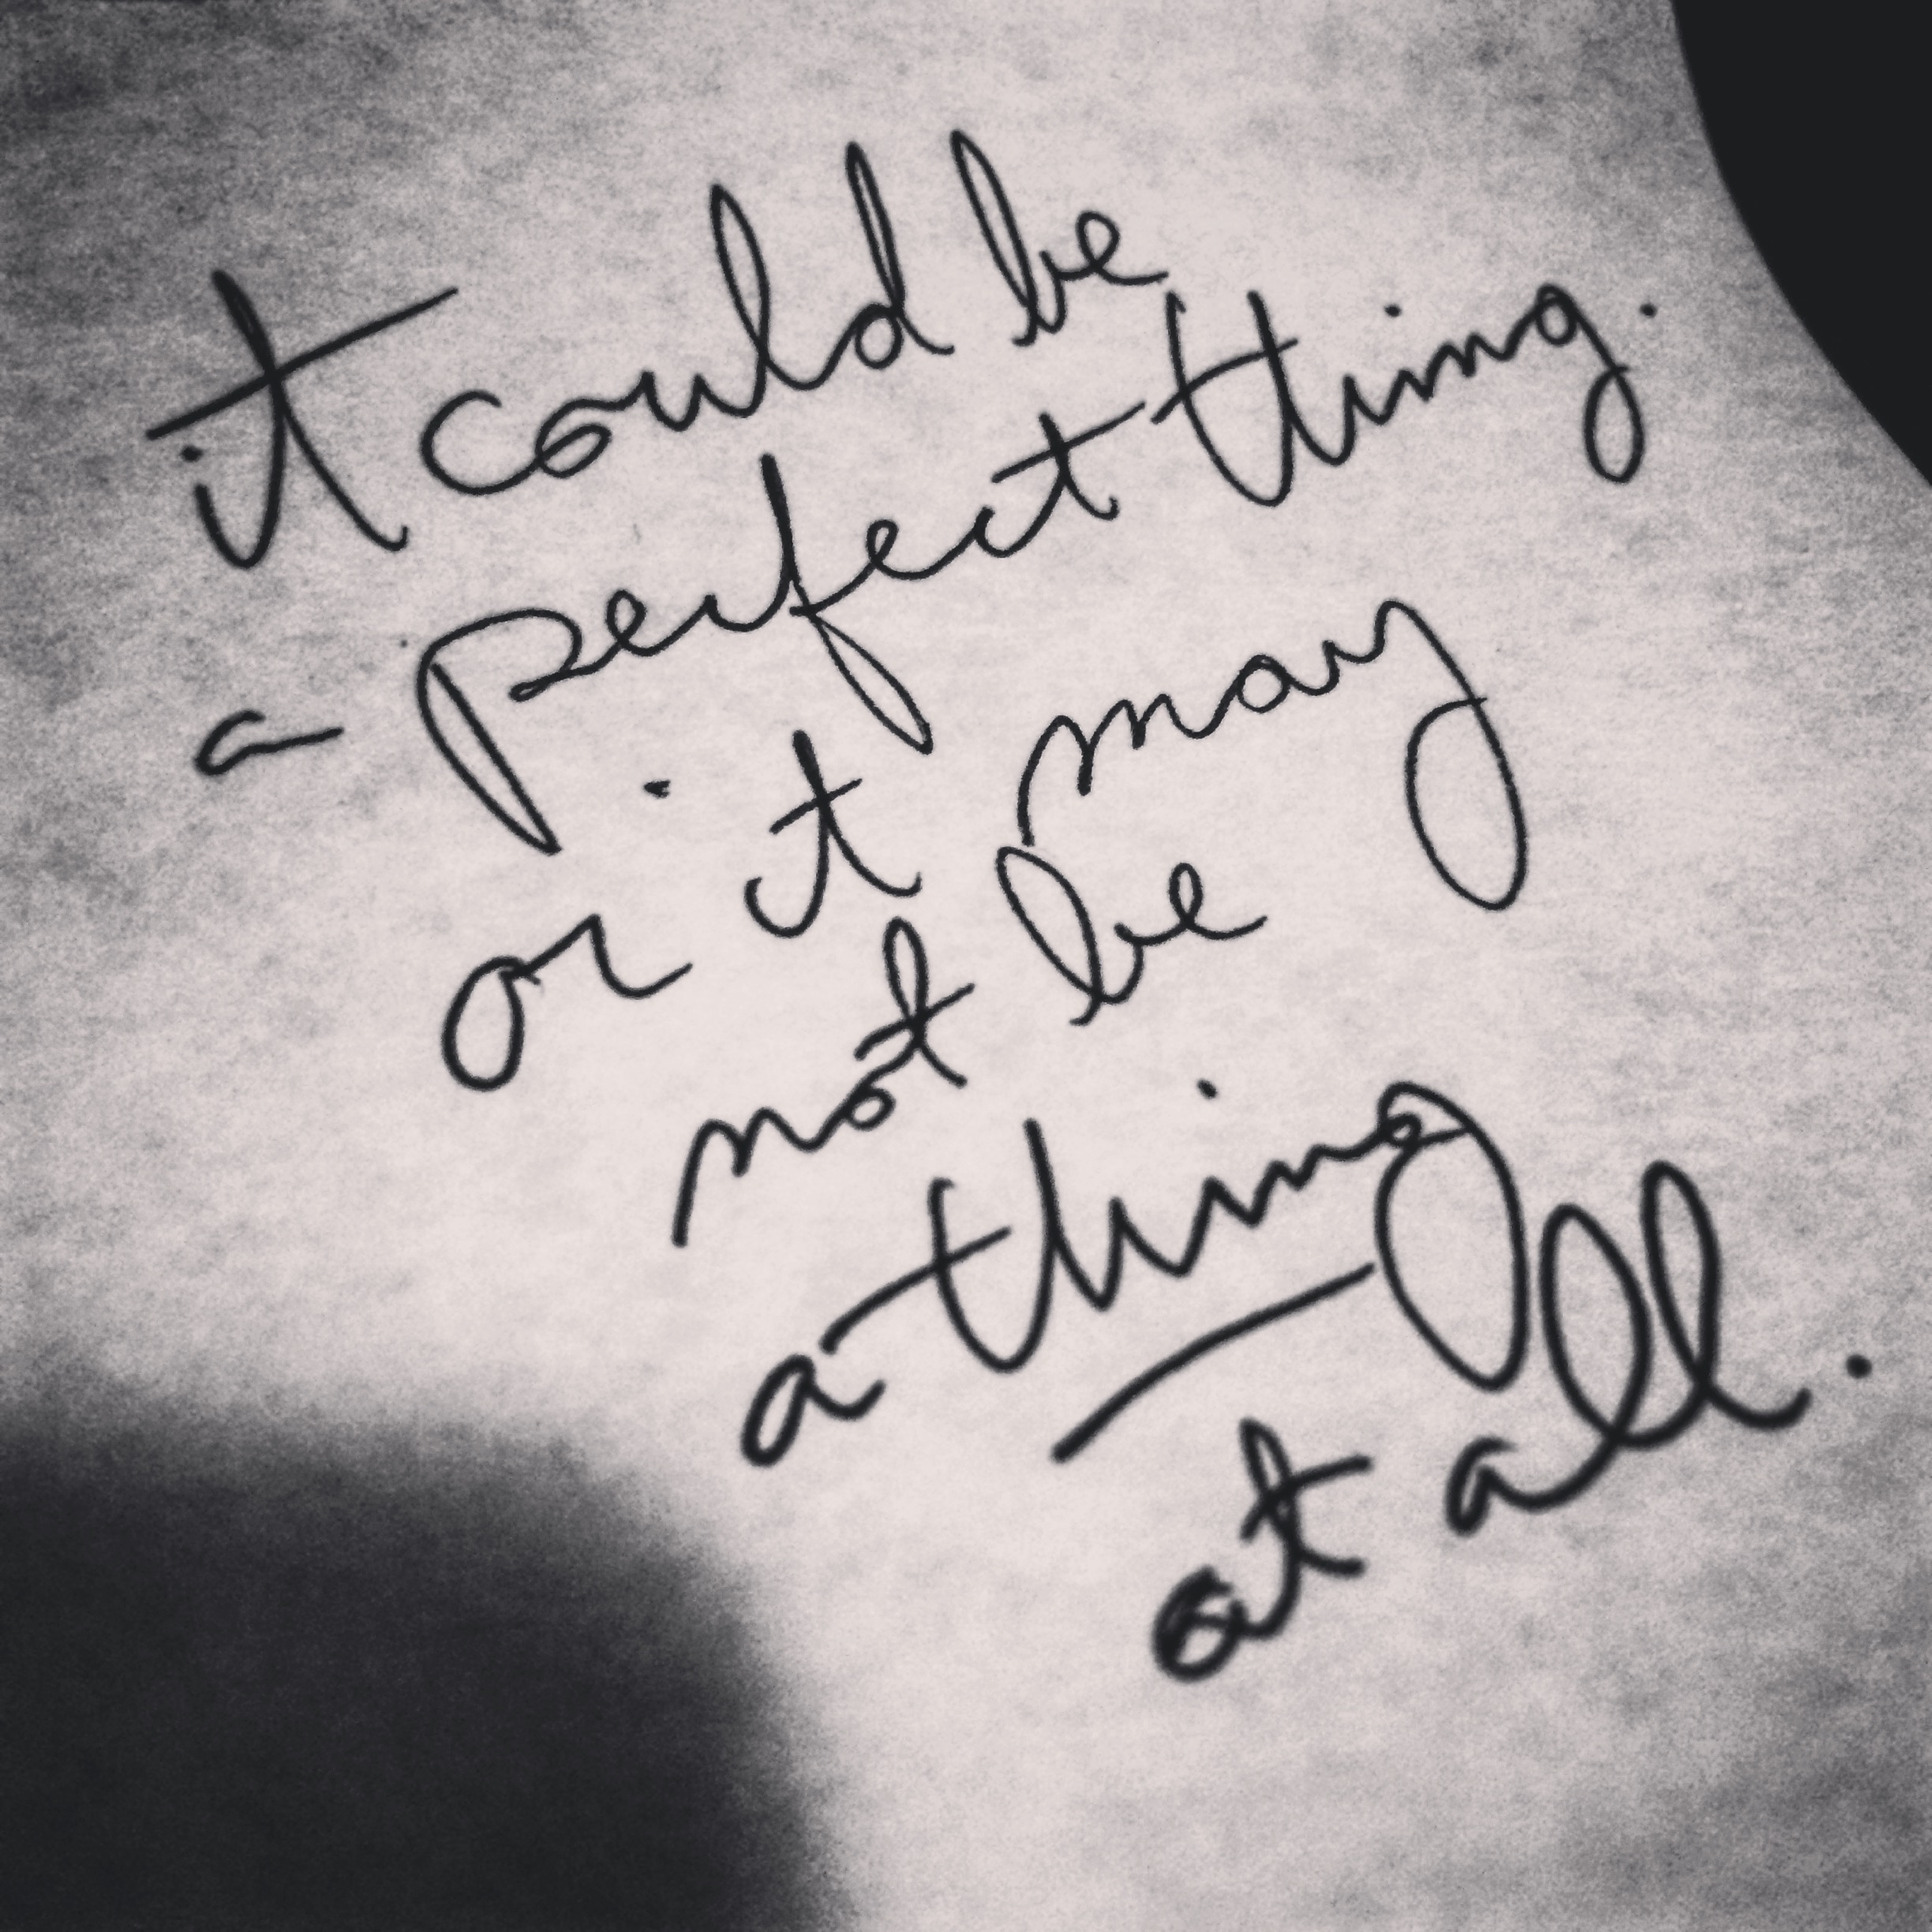 it could be
a perfect thing.
or it may
not be
a thing
at all.